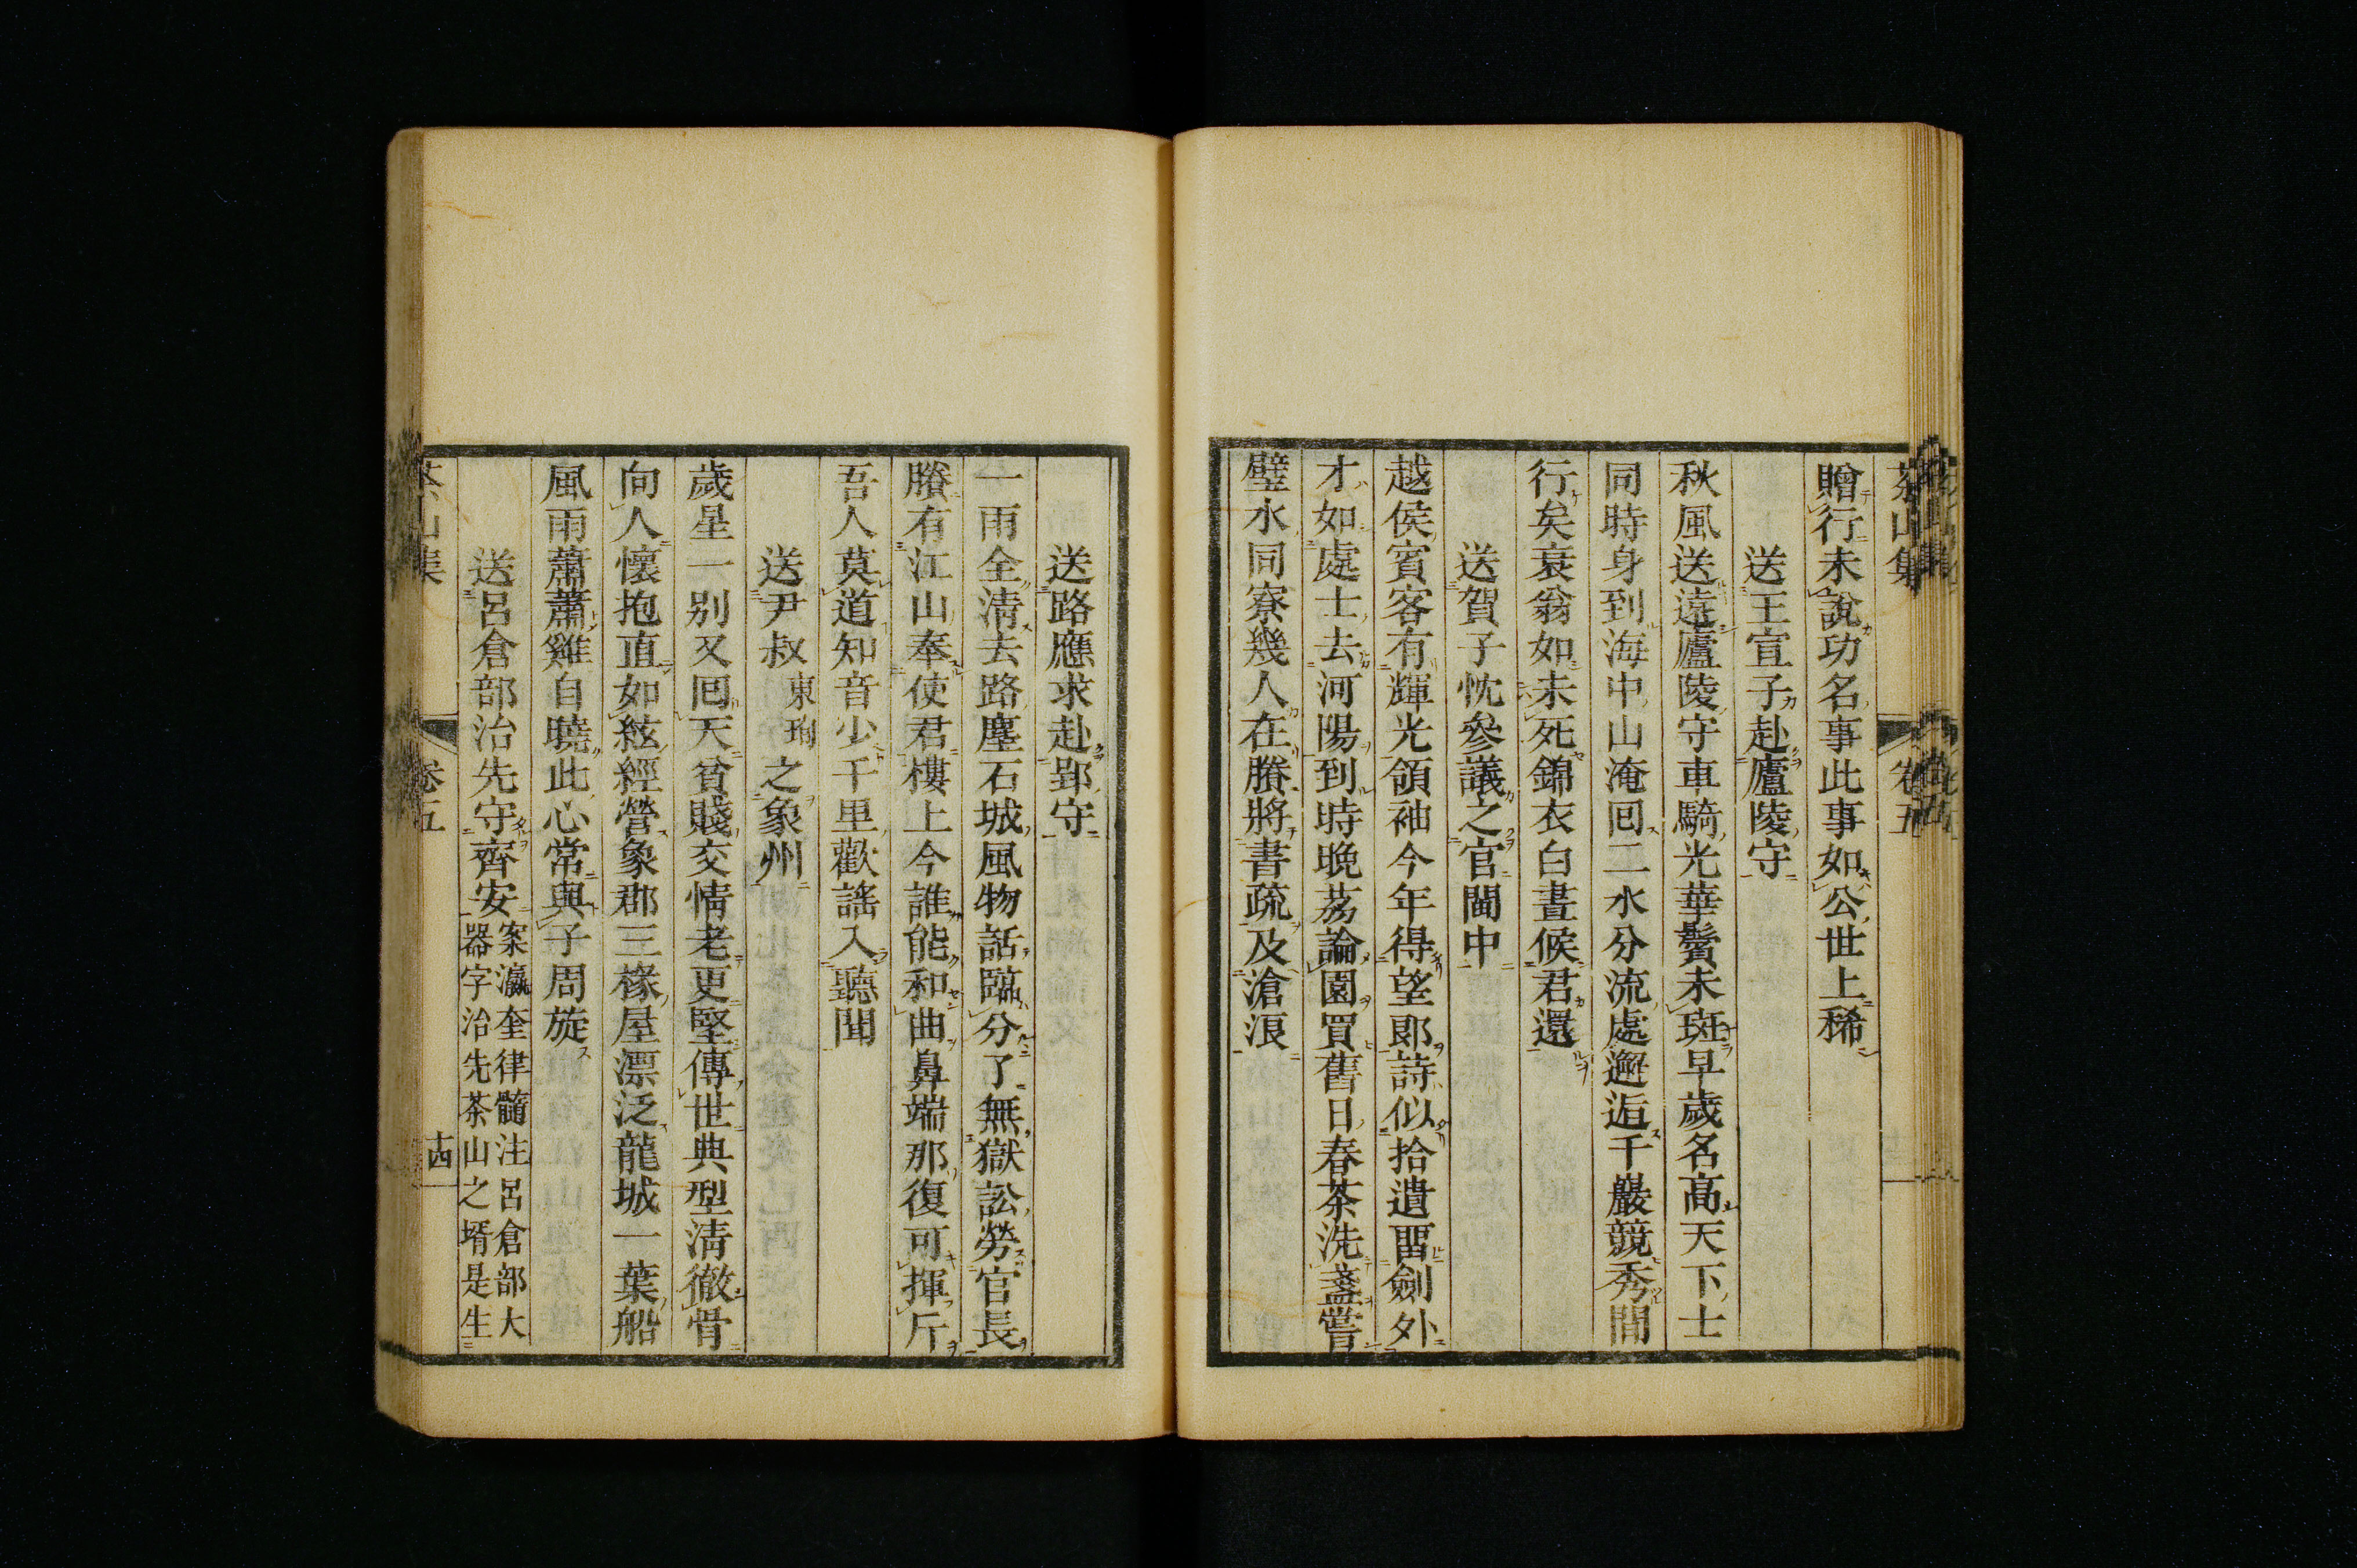 茶山集 卷五
贈行未說功名事此事如公世上稀
送王宣子赴廬陵守
秋風送遠廬陵守車騎光華鬢未斑早歲名高天下士
同時身到海中山淹回二水分流處邂逅千巖競秀間
行矣衰翁如未死錦衣白晝候君還
送賀子忱參議之官閩中
越侯賓客有輝光領袖今年得望郎詩似拾遺畱劍外
才如處士去河陽到時晚荔論園買舊日春茶洗盞嘗
璧水同寮幾人在賸將書疏及滄浪
送路應求赴郢守
一雨全清去路塵石城風物話臨分了無獄訟勞官長
賸有江山奉使君樓上今誰能和曲鼻端那復可揮斤
吾人莫道知音少千里歡謠入聽聞
送尹叔東珣之象州
歲星一別又囘天貧賤交情老更堅傳世典型淸徹骨
向人懷抱直如絃經營象郡三椽屋漂泛龍城一葉船
風雨蕭蕭雞自曉此心常與子周旋
送呂倉部治先守齊安案瀛奎律髓注呂倉部大
器字治先茶山之壻是生
茶山集 卷五 十四